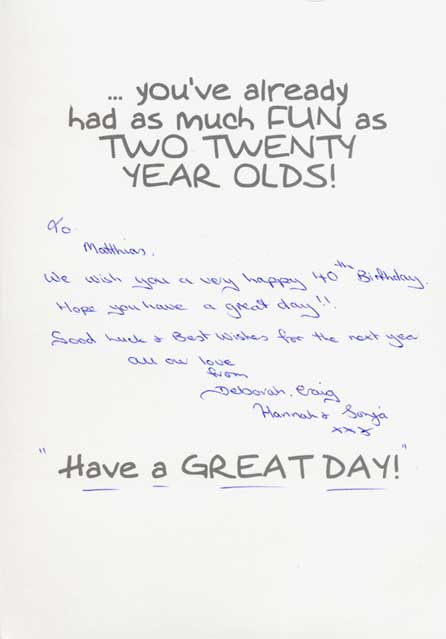 ... you've already
had as much FUN as
TWO TWENTY
YEAR OLDS!
To
Matthias,
We wish you a very happy 40th Birthday.
Hope you have a great day!!
Good Luck & Best Wishes for the next year
all our love
from
Deborah, Craig
Hannah & Sonja
xxx
"Have a GREAT DAY!"